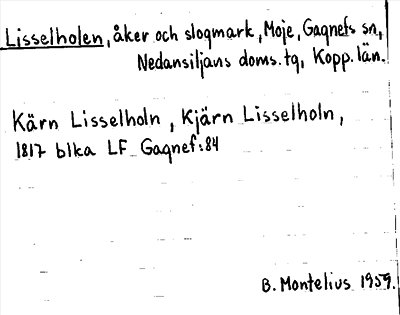 Lisselholen, åker och slogmark, Moje, Gagnefs sn,
Nedansiljans doms.tg, Kopp. län.
Kärn Lisselholn, Kjärn Lisselholn,
1817 blka LF Gagnef:84
B. Montelius 1959.